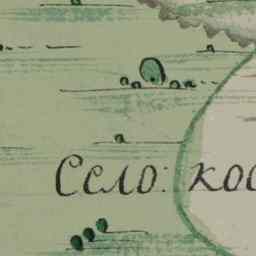 Село: кос